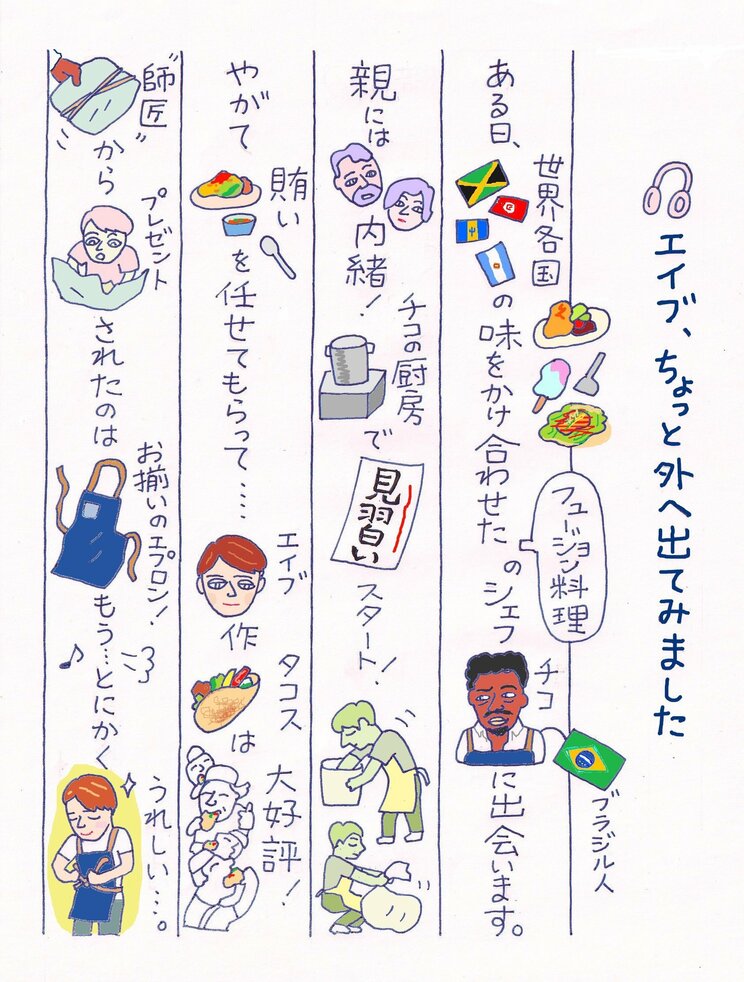 エイブ、ちょっと外へ出てみました
ある日、世界各国の味をかけ合わせたフュージョン料理のシェフチコブラジル人に出会います。
親には内緒!チコの厨房で見習いスタート!
やがて賄いを任せてもらって‥‥エイブ作タコスは大好評!
“師匠”からプレゼントされたのはお揃いのエプロン!もう…とにかくうれしい…。